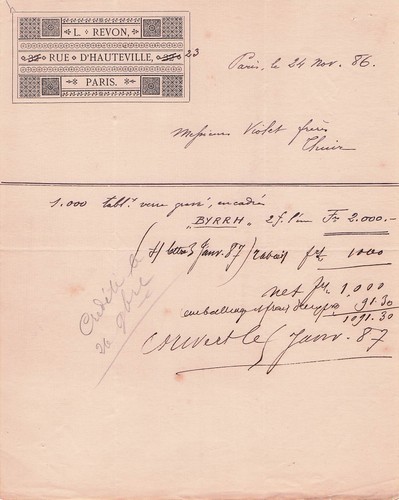 L. REVON,
32 RUE D'HAUTEVILLE, 32 23
PARIS.
Paris, le 24 Nov. 86.
Messieurs Violet frères
Thuir
1.000 tabl. verre gravé, encadrés
"BYRRH" 2f. l'un Frs 2.000.-
lettre 3 Janv. 87) rabais frs 1000
net frs 1,000
emballage et frais 91.30
1091.30
Couvert le 5 Janv. 87
Crédité le
26 9bre